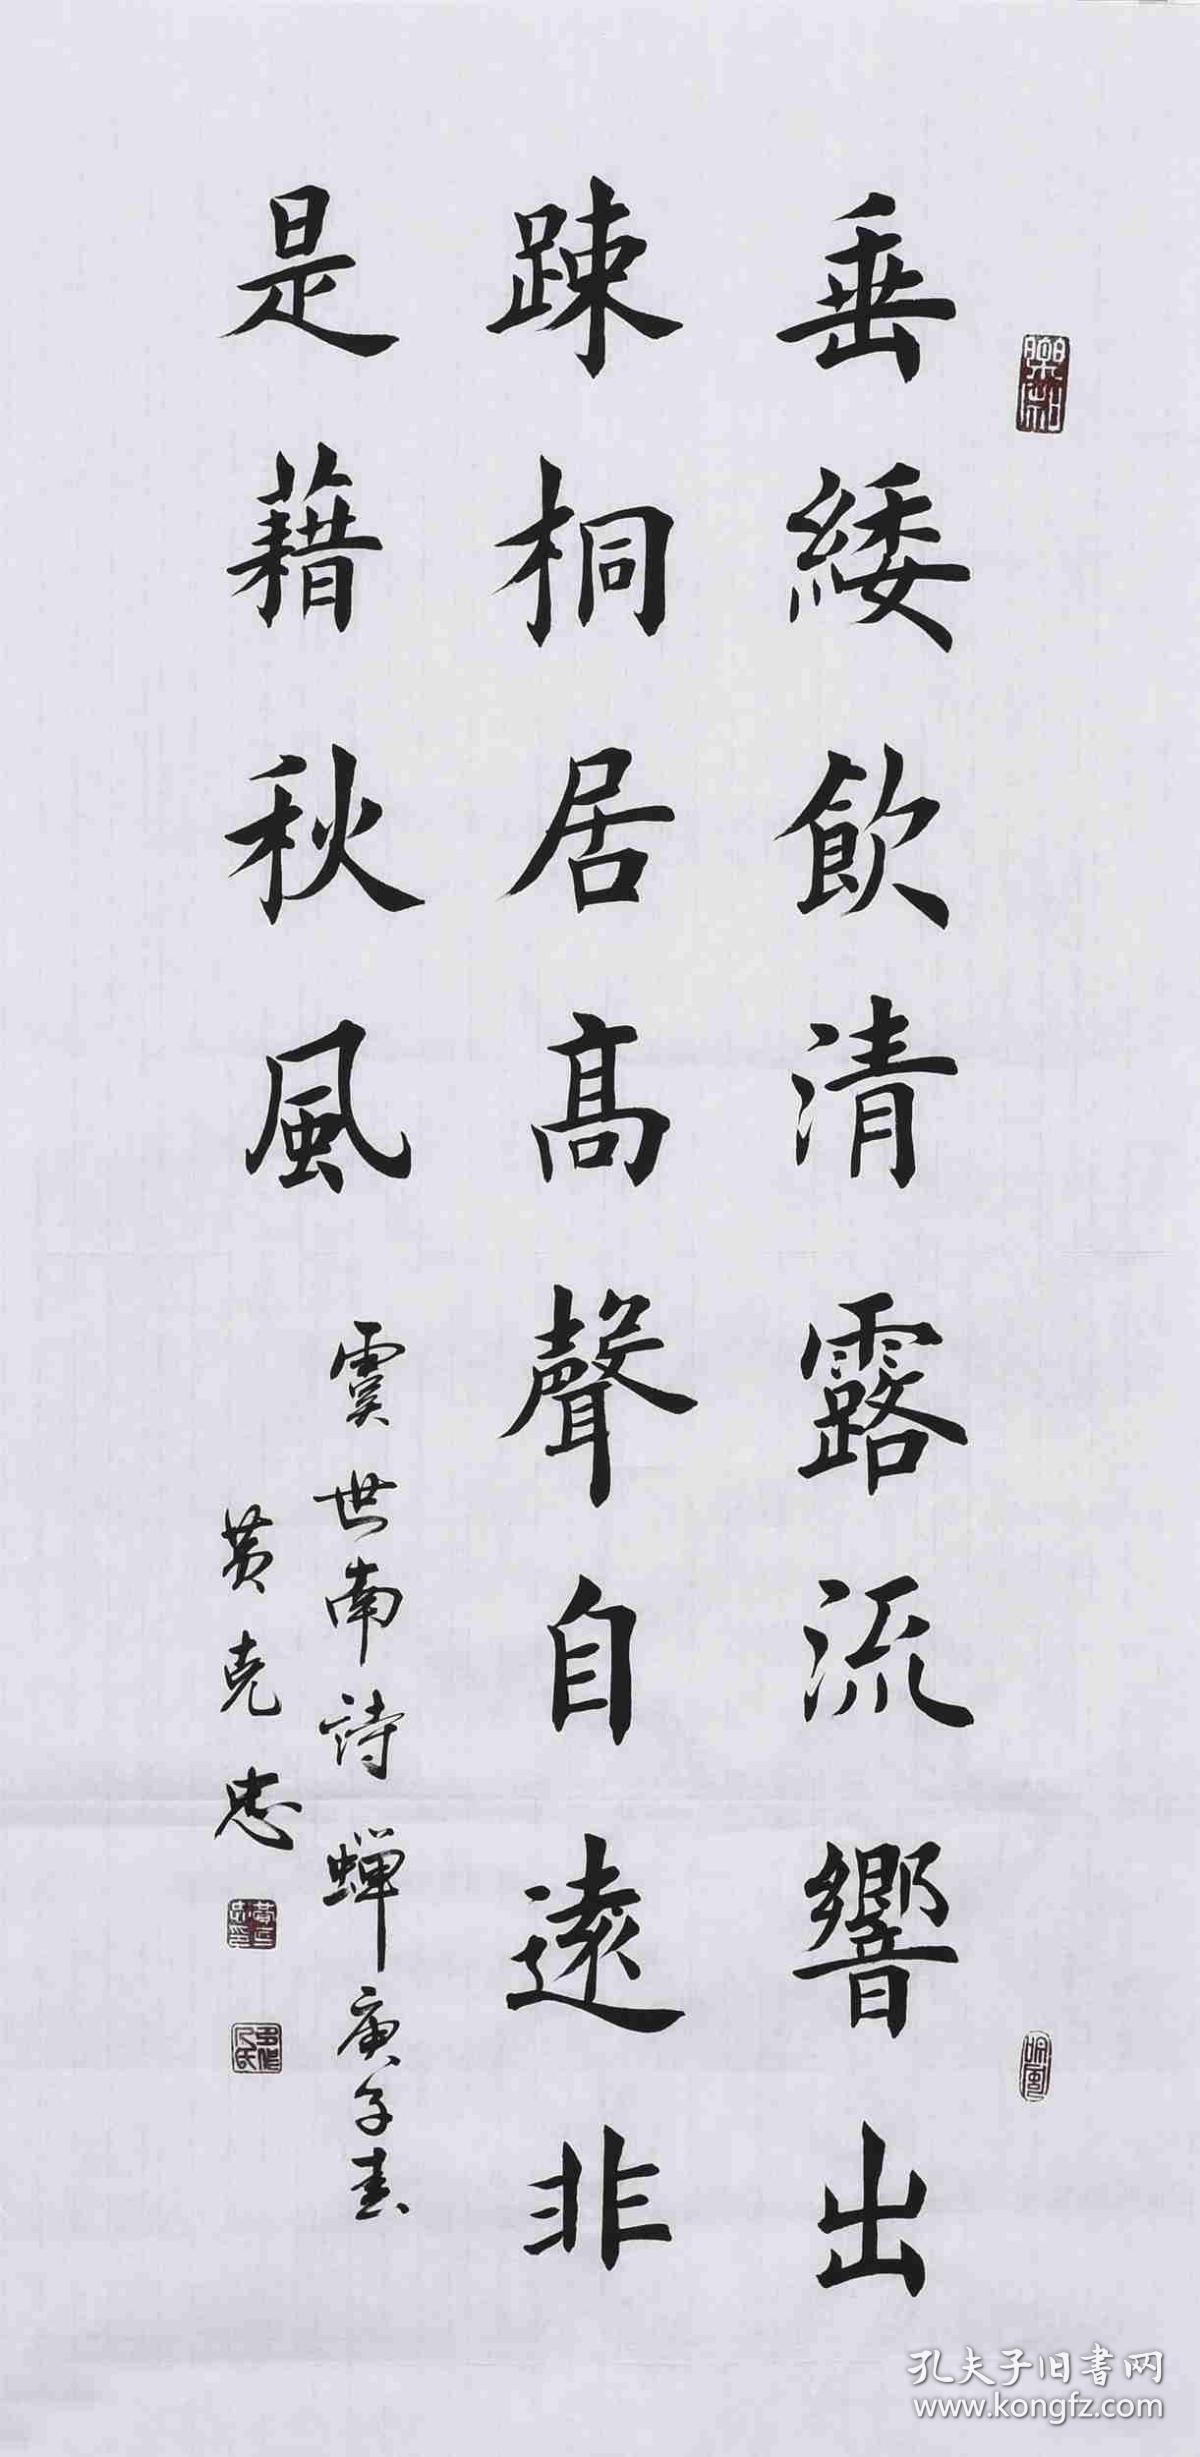 垂緌飲清露流響出
踈桐居高聲自遠非
是藉秋風
虞世南詩蝉庚子春
黄克忠
孔夫子旧书网
www.kongfz.com